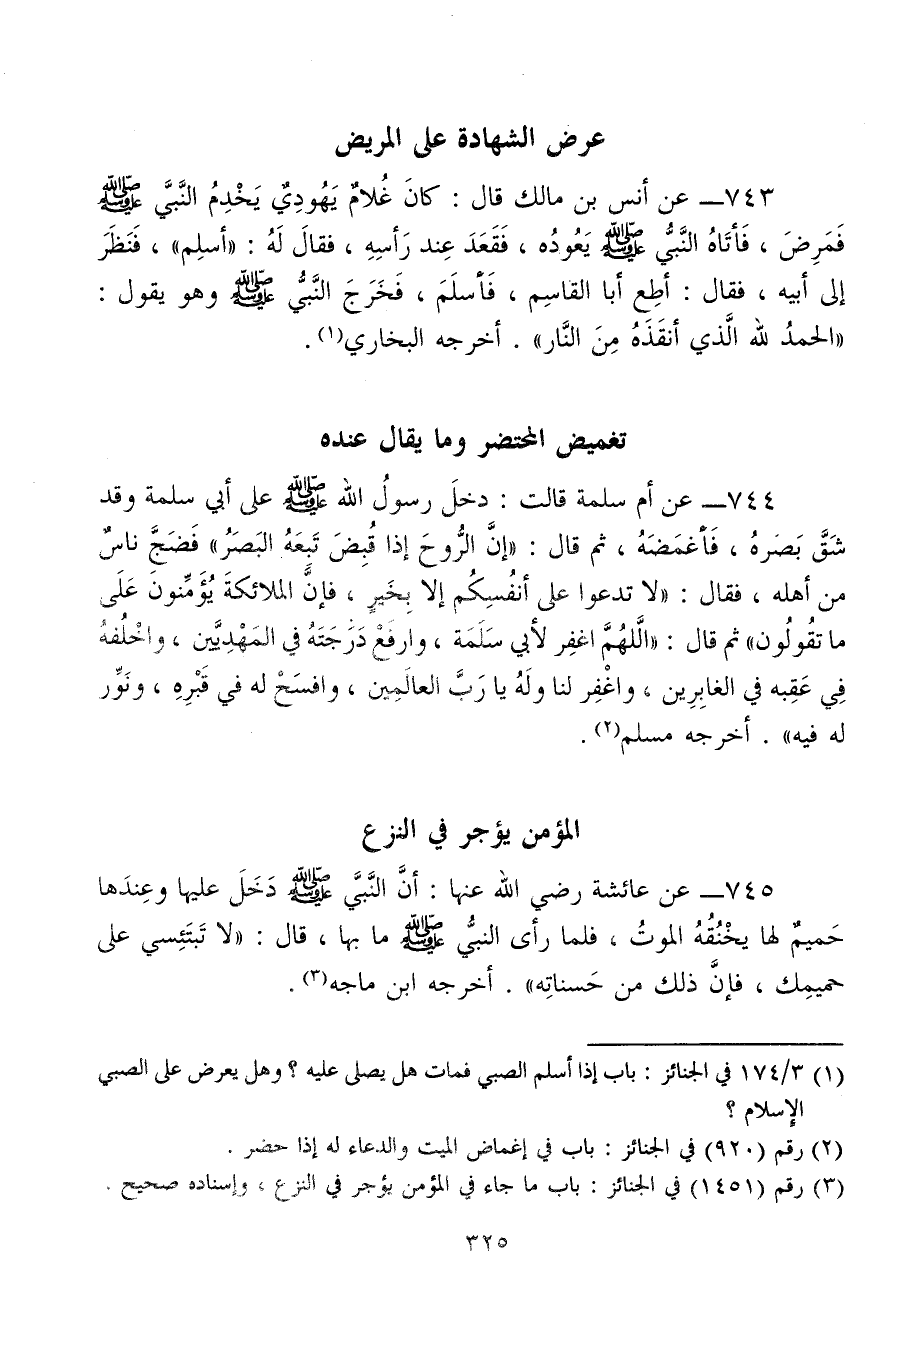 عرض الشهادة على المريض
٧٤٣ــ عن أنس بن مالك قال : كانَ غُلامٌ يَهُودِيٌ يَخْدِمُ النَّبيَّ ﷺ
فَمَرِضَ ، فَأتَاهُ النَّبيُّ ﷺ يَعُودُه ، فَقَعَدَ عِند رَأسِهِ ، فقالَ لَهُ : «أسلِم» ، فَنَظَرَ
إلى أبيه ، فقال : أطِع أبا القاسِم ، فَأسلَمَ ، فَخَرَجَ النَّبيُّ ﷺ وهو يقول :
«الحمدُ لله الَّذي أنقَذَهُ مِنَ النَّار» . أخرجه البخاري(١) .
تغميض المحتضر وما يقال عنده
٧٤٤ــ عن أم سلمة قالت : دخلَ رسولُ الله ﷺ على أبي سلمة وقد
شَقَّ بَصَرهُ ، فَأغمَضَهُ ، ثم قال : «إنَّ الرُّوحَ إذا قُبِضَ تَبِعَهُ البَصَرُ» فَضَجَّ ناسٌ
من أهله ، فقال : «لا تدعوا على أنفُسِكُم إلا بِخَيرٍ ، فإنَّ الملائكةَ يُؤَمِّنونَ عَلَى
ما تقُولُون» ثم قال : «اللَّهُمَّ اغفِر لأبي سَلَمَة ، وارفَعْ دَرَجَتَهُ في المَهْدِيَّين ، واخْلُفهُ
فِي عَقِبه في الغابِرِين ، واغْفِر لنا ولَهُ يا رَبَّ العالَمِين ، وافسَحْ له في قَبْرِهِ ، ونَوِّر
له فيه» . أخرجه مسلم(٢) .
المؤمن يؤجر في النزع
٧٤٥ــ عن عائشة رضي الله عنها : أنَّ النَّبيَّ ﷺ دَخَلَ عليها وعِندَها
حَميمٌ لها يخْنُقُهُ الموتُ ، فلما رأى النبيُّ ﷺ ما بها ، قال : «لا تَبتَئِسي على
حميمِك ، فإنَّ ذلك من حَسناتِه» . أخرجه ابن ماجه(٣) .
(١) ١٧٤/٣ في الجنائز : باب إذا أسلم الصبي فمات هل يصلى عليه ؟ وهل يعرض على الصبي
الإسلام ؟
(٢) رقم (٩٢٠) في الجنائز : باب في إغماض الميت والدعاء له إذا حضر .
(٣) رقم (١٤٥١) في الجنائز : باب ما جاء في المؤمن يؤجر في النزع ، وإسناده صحيح .
٣٢٥